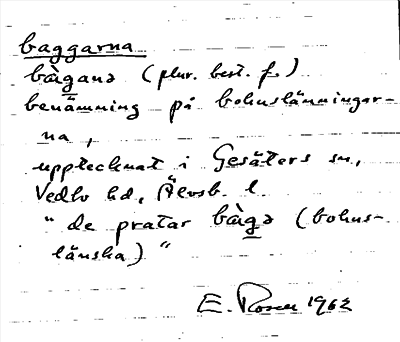 baggarna
bàganə (plur. best. f.)
benämning på bohuslänningar-
na,
upptecknat i Gesäters sn,
Vedbo hd, Älvsb. l.
" de pratar bàgə (bohus-
länska) "
E. Rosen 1962